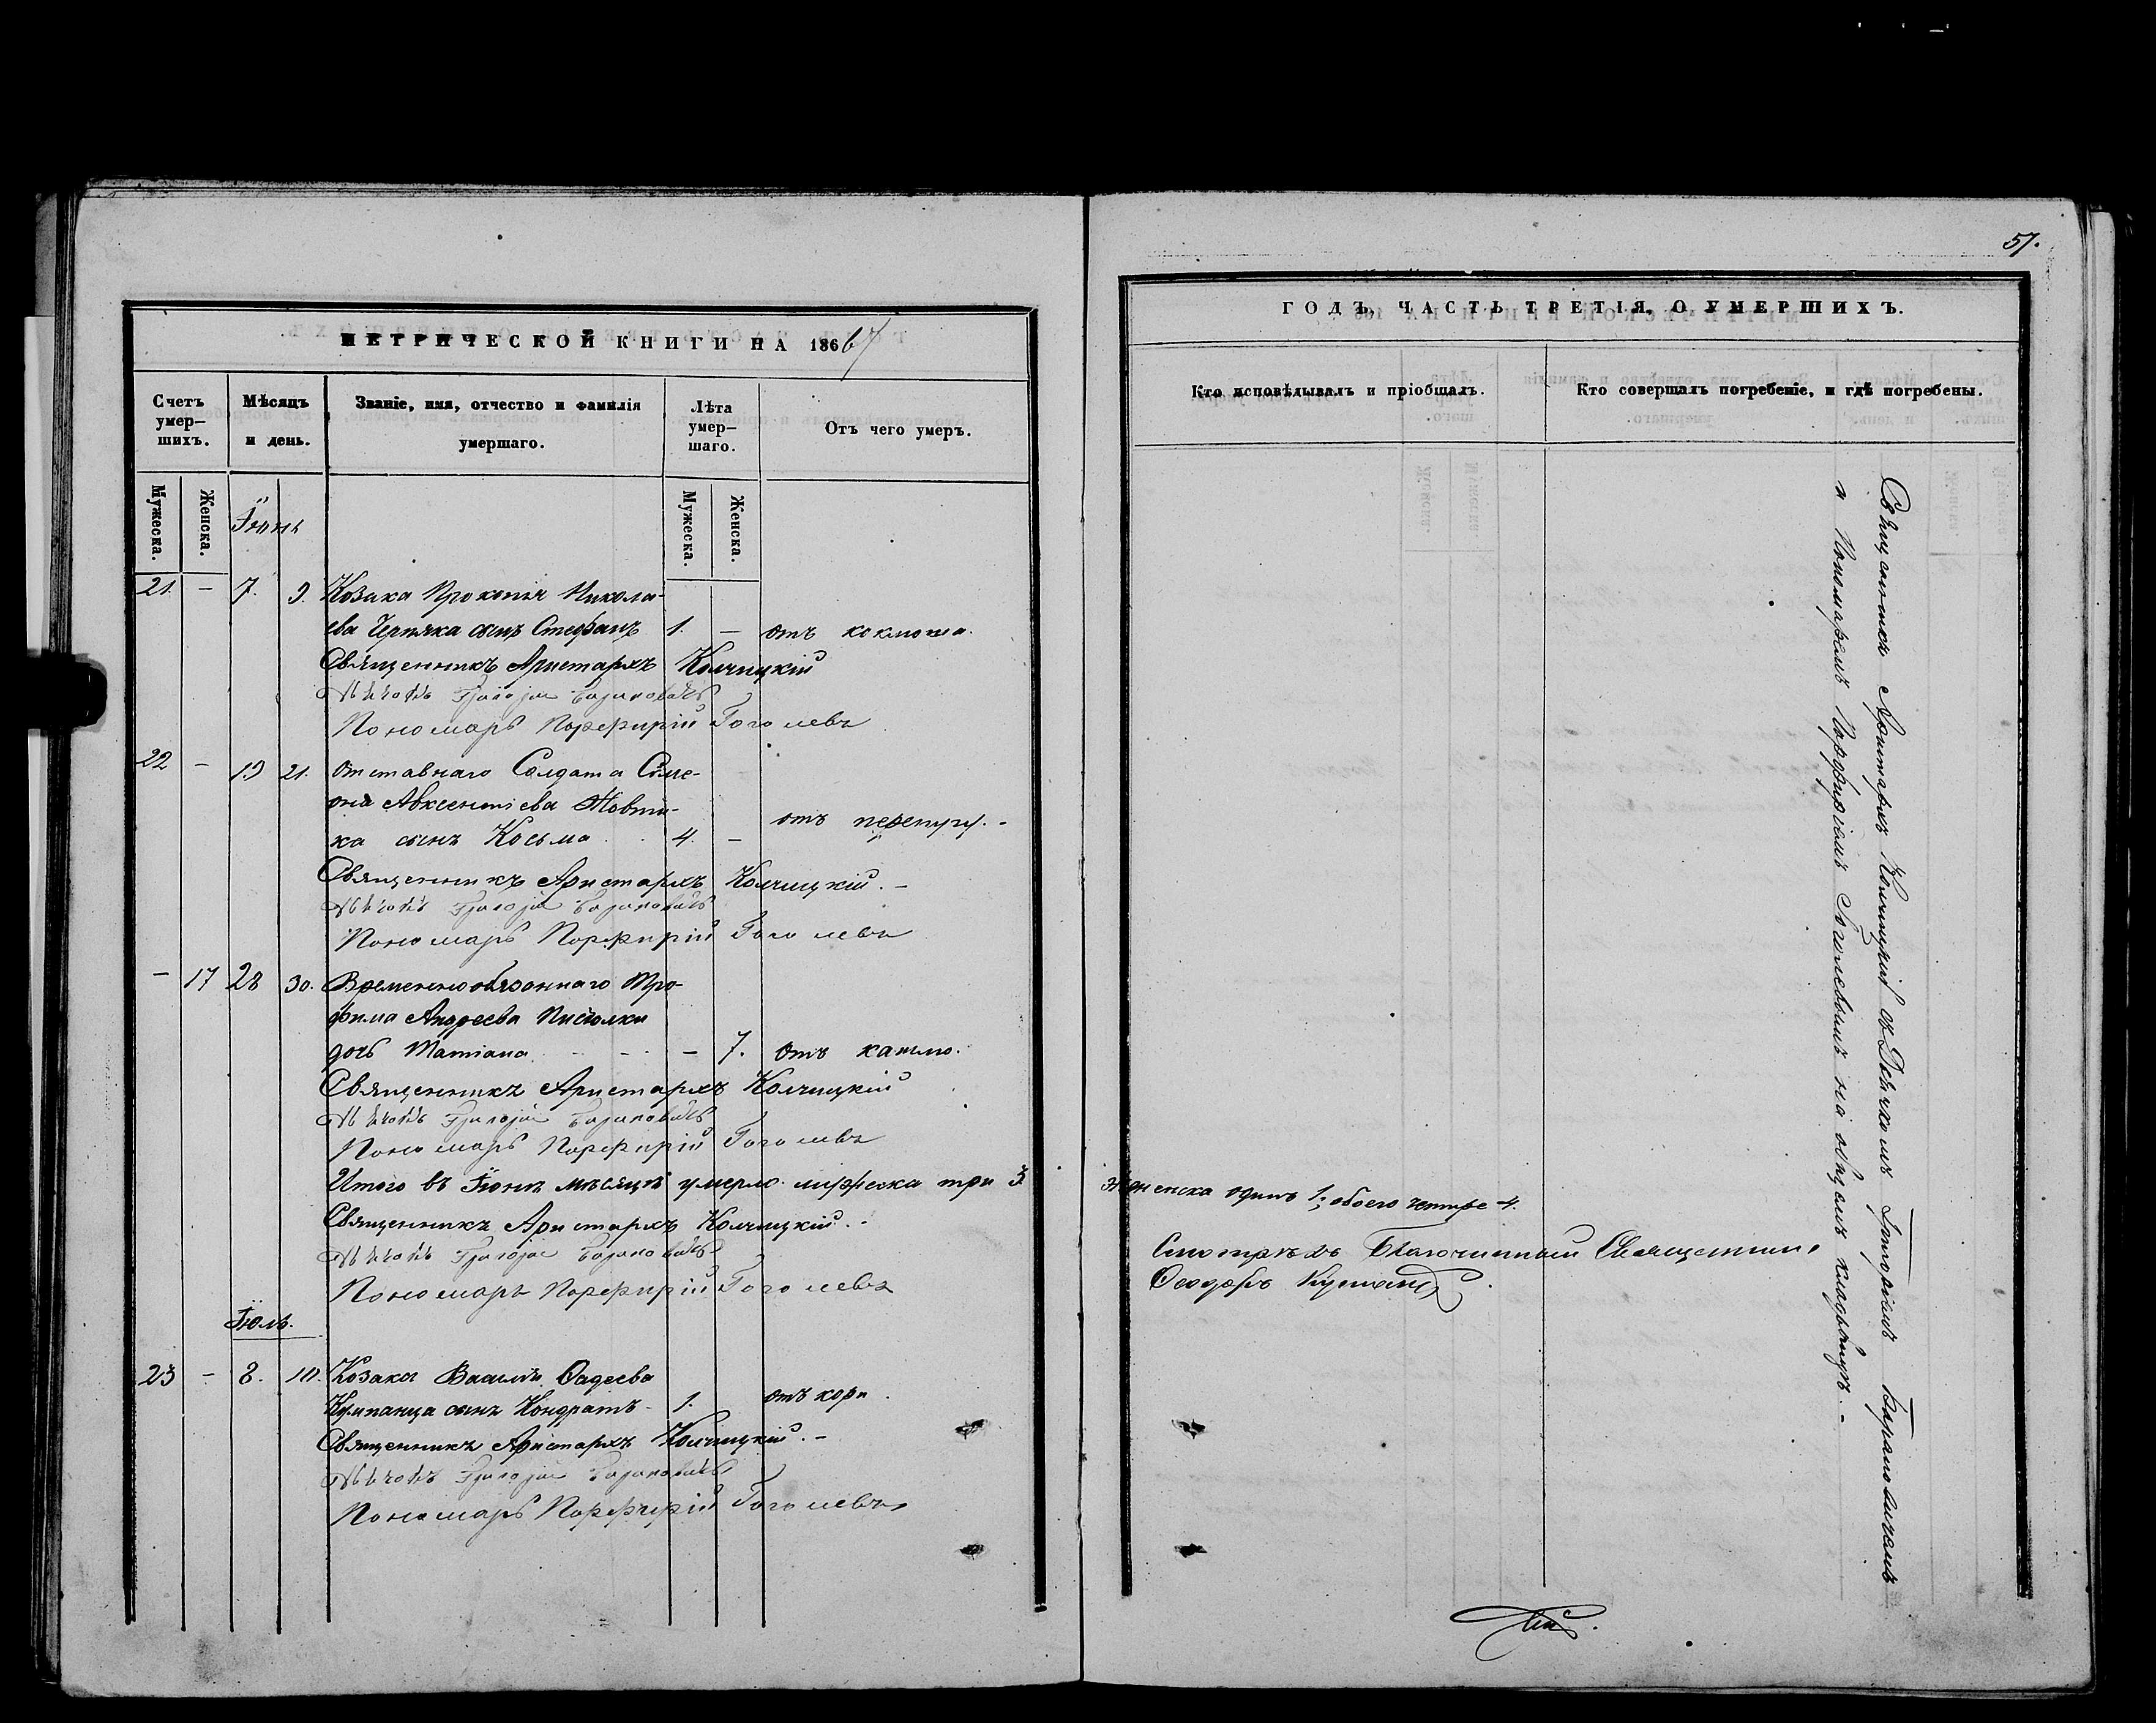 МЕТРИЧЕСКОЙ КНИГИ НА 1867
Счетъ умер–шихъ.
Мѣсяцъ и день.
Званіе, имя, отчество и фамилія умершаго.
Лѣта умер–шаго.
Отъ чего умеръ.
Мужеска.
Женска.
Мужеска.
Женска.
Іюнь
21. – 7. 9. Козака Прокопія Никола-
ева Черняка сынъ Стефанъ 1. – отъ коклюша.
Священникъ Аристархъ Колчицкій
Дьячокъ Григорій Барановичъ
Пономарь Порфирій Гоголевъ
22 – 19 21. Отставнаго Солдата Симе-
она Авксентіева Жовти-
ка сынъ Косьма 4. – отъ
Священникъ Аристархъ Колчицкій. –
Дьячокъ Григорій Барановичъ
Пономарь Порфирій Гоголевъ
– 17 28 30. Временнообязаннаго Тро-
фима Андреева
дочь Татіана – 7. отъ кашлю.
Священникъ Аристархъ Колчицкій
Дьячокъ Григорій Барановичъ
Пономарь Порфирій Гоголевъ
Итого въ Іюнѣ мѣсяцѣ умерло мужеска три 3.
Священникъ Аристархъ Колчицкій. –
Дьячокъ Григорій Барановичъ
Пономарь Порфирій Гоголевъ
Іюль.
23 – 8. 10. Козака Василія Фадеева
Кумпанца сынъ Кондратъ – 1. отъ кори.
Священникъ Аристархъ Колчицкій. –
Дьячокъ Григорій Барановичъ
Пономарь Порфирій Гоголевъ
57.
ГОДЪ, ЧАСТЬ ТРЕТІЯ, О УМЕРШИХЪ.
Кто исповѣдывалъ и пріобщалъ.
Кто совершалъ погребеніе, и гдѣ погребены.
Священникъ Аристархъ Колчицкій съ Дьячкомъ Григоріемъ Барановичемъ
и Пономаремъ Порфиріемъ Гоголевымъ на общемъ кладбищѣ. –
женска одинъ 1; обоего четыре – 4.
Смотрѣлъ Благочинный Священникъ
Ѳеодоръ